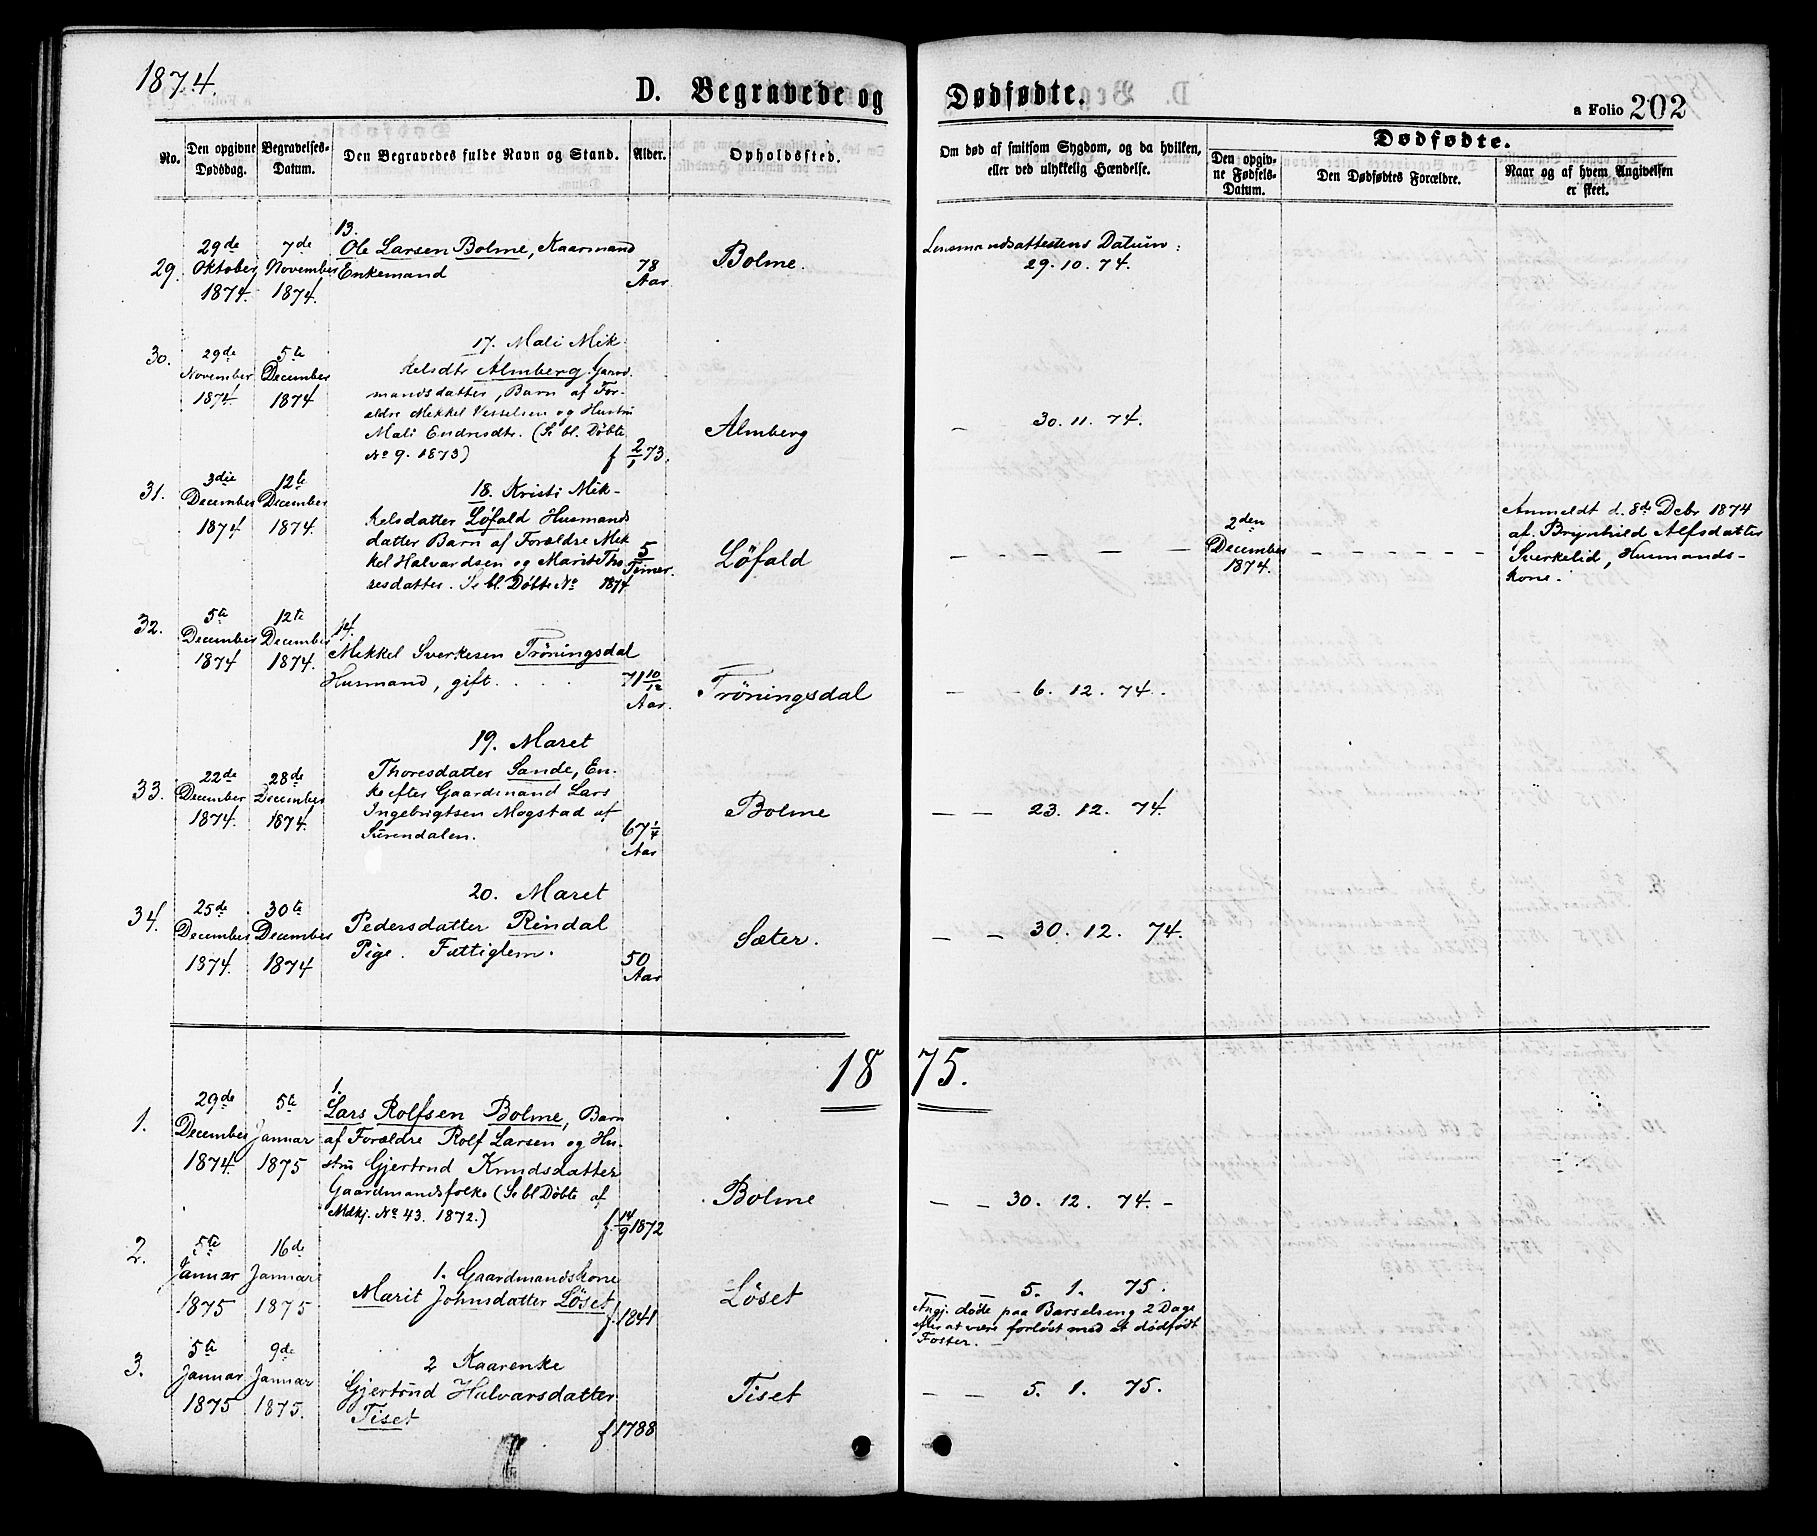 1874.
D. Begravede og Dødfødte.
a Folio 202
No.
Den opgivne Døddsdag.
Begravelses-Datum.
Den Begravedes fulde Navn og Stand.
Alder.
Opholdssted.
Om død af smitsom Sygdom, og da hvilken,
eller ved ulykkelig Hændelse.
Dødfødte.
Den opgivne Fødsels-Datum.
Den Dødfødtes Forældre.
Naar og af hvem Angivelsen
er skeet.
29.
29de Oktober 1874.
7de November 1874.
13.
Ole Larsen Bolme, Kaarmand
Enkemand
78 Aar
Bolme.
Lensmandsattestens Datum:
29. 10. 74.
30.
29de November 1874.
5te December 1874
17. Mali Mik-
kelsdtr Almberg. Gaard-
mandsdatter, Barn af For-
ældre Mekkel Vesselsen og Hustru
Mali Endresdtr. (Se bl. Døbte
No 9. 1873)
f 2/1 73.
Almberg
— 30. 11. 74.
31.
3die December 1874
12te December 1874.
18. Kristi Mik-
kelsdatter Løfald Husmands
datter Barn af Forældre Mik
kel Halvardsen og Marit Tho
resdatter. Se bl. Døbte No 1874
5 Timer.
Løfald
— — — — —
2den December 1874.
— — — — — —
Anmeldt d. 8de Debr 1874
af Brynhild Alfsdatter
Sverkelid, Husmands-
kone.
32.
5te December 1874
12te December 1874.
14.
Mekkel Sverkesen Trøningsdal
Husmand, gift.
71 10/12 Aar.
Trøningsdal
— — 6. 12. 74.
33.
22de December 1874.
28de December 1874.
19. Maret
Thoresdatter Sande, En-
ke efter Gaardmand Lars
Ingebrigtsen Mogstad af
Surendalen.
67 1/4 Aar
Bolme
— — 23. 12. 74.
34.
25de December 1874.
30te December 1874
20. Maret
Pedersdatter Rindal
Pige. Fattiglem.
50 Aar
Sæter.
— — 30. 12. 74.
1875.
1.
29de December 1874.
5te Januar 1875
1.
Lars Rolfsen Bolme, Barn
af Forældre Rolf Larsen og Hu-
stru Gjertrud Knudsdatter
Gaardmandsfolke (Se bl Døbte af
Mdkj. No 43. 1872.)
f. 14/9 1872
Bolme
— — 30. 12. 74. —
2.
5te Januar 1875
16de Januar 1875
1. Gaardmandskone
Marit Johnsdatter Løset
f. 1841
Løset
— 5. 1. 75.
Angj. døde paa Barselseng 2 Dage
efter at være forløst med et dødfødt
Foster. —
3.
5te Januar 1875
9de Januar 1875.
2 Kaarenke
Gjertrud Halvarsdatter
Tiset
f 1788
Tiset
— — 5. 1. 75.